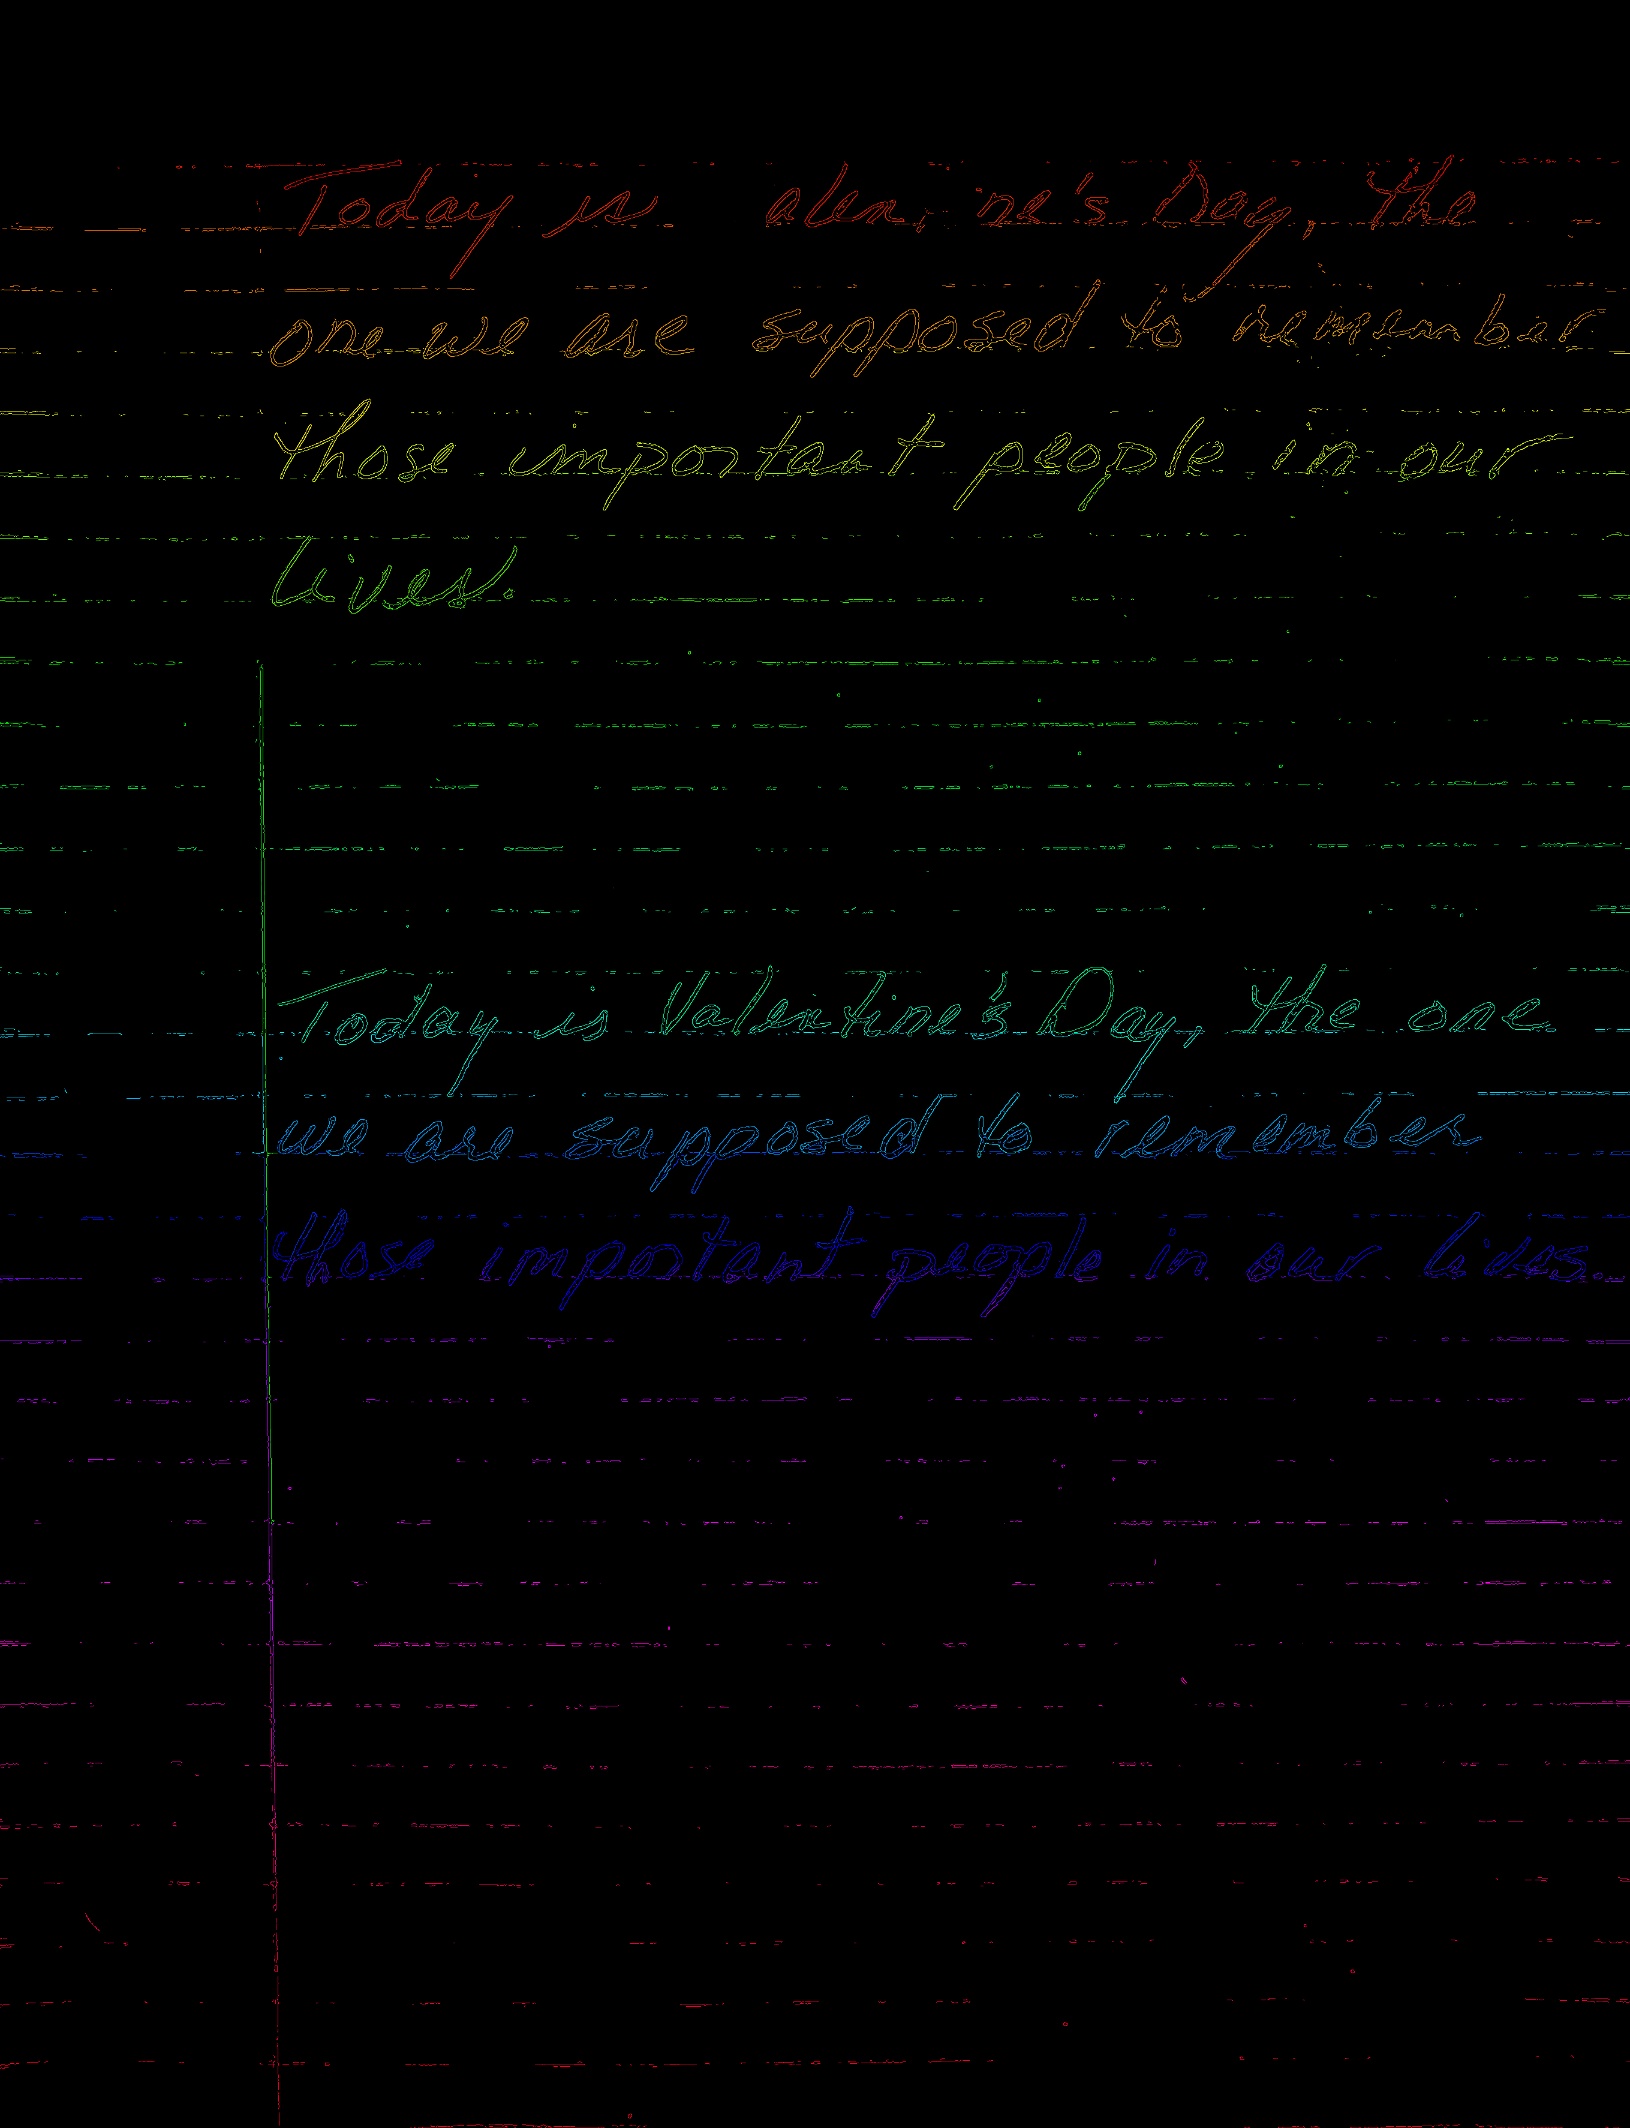 Today is alen ne's Day, the
one we are supposed to remember
those important people in our
lives.
Today is Valentine's Day, the one
we are supposed to remember
those important people in our lives.